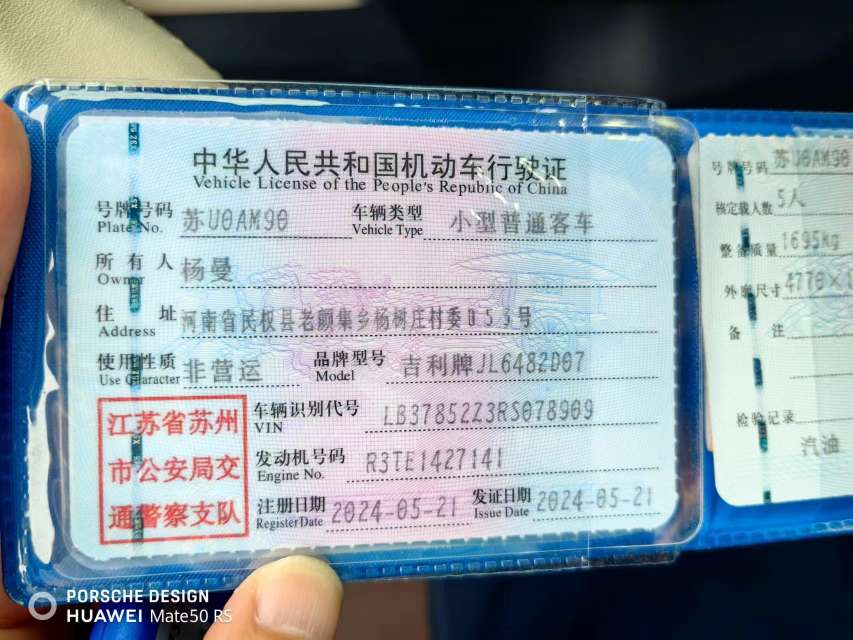 中华人民共和国机动车行驶证
Vehicle License of the People's Republic of China
号牌号码 苏U0AM90 车辆类型 小型普通客车
Plate No. Vehicle Type
所有人 杨曼
Owner
住址 河南省民权县老颜集乡杨树庄村委053号
Address
使用性质 非营运 品牌型号 吉利牌JL6482D07
Use Character Model
江苏省苏州
市公安局交
通警察支队
车辆识别代号 LB37852Z3RS078909
VIN
发动机号码 R3TE1427141
Engine No.
注册日期 2024-05-21 发证日期 2024-05-21
Register Date Issue Date
号牌号码 苏U0AM90
核定载人数 5人
整备质量 1695kg
外廓尺寸 4770×
备注
检验记录
汽油
PORSCHE DESIGN
HUAWEI Mate50 RS